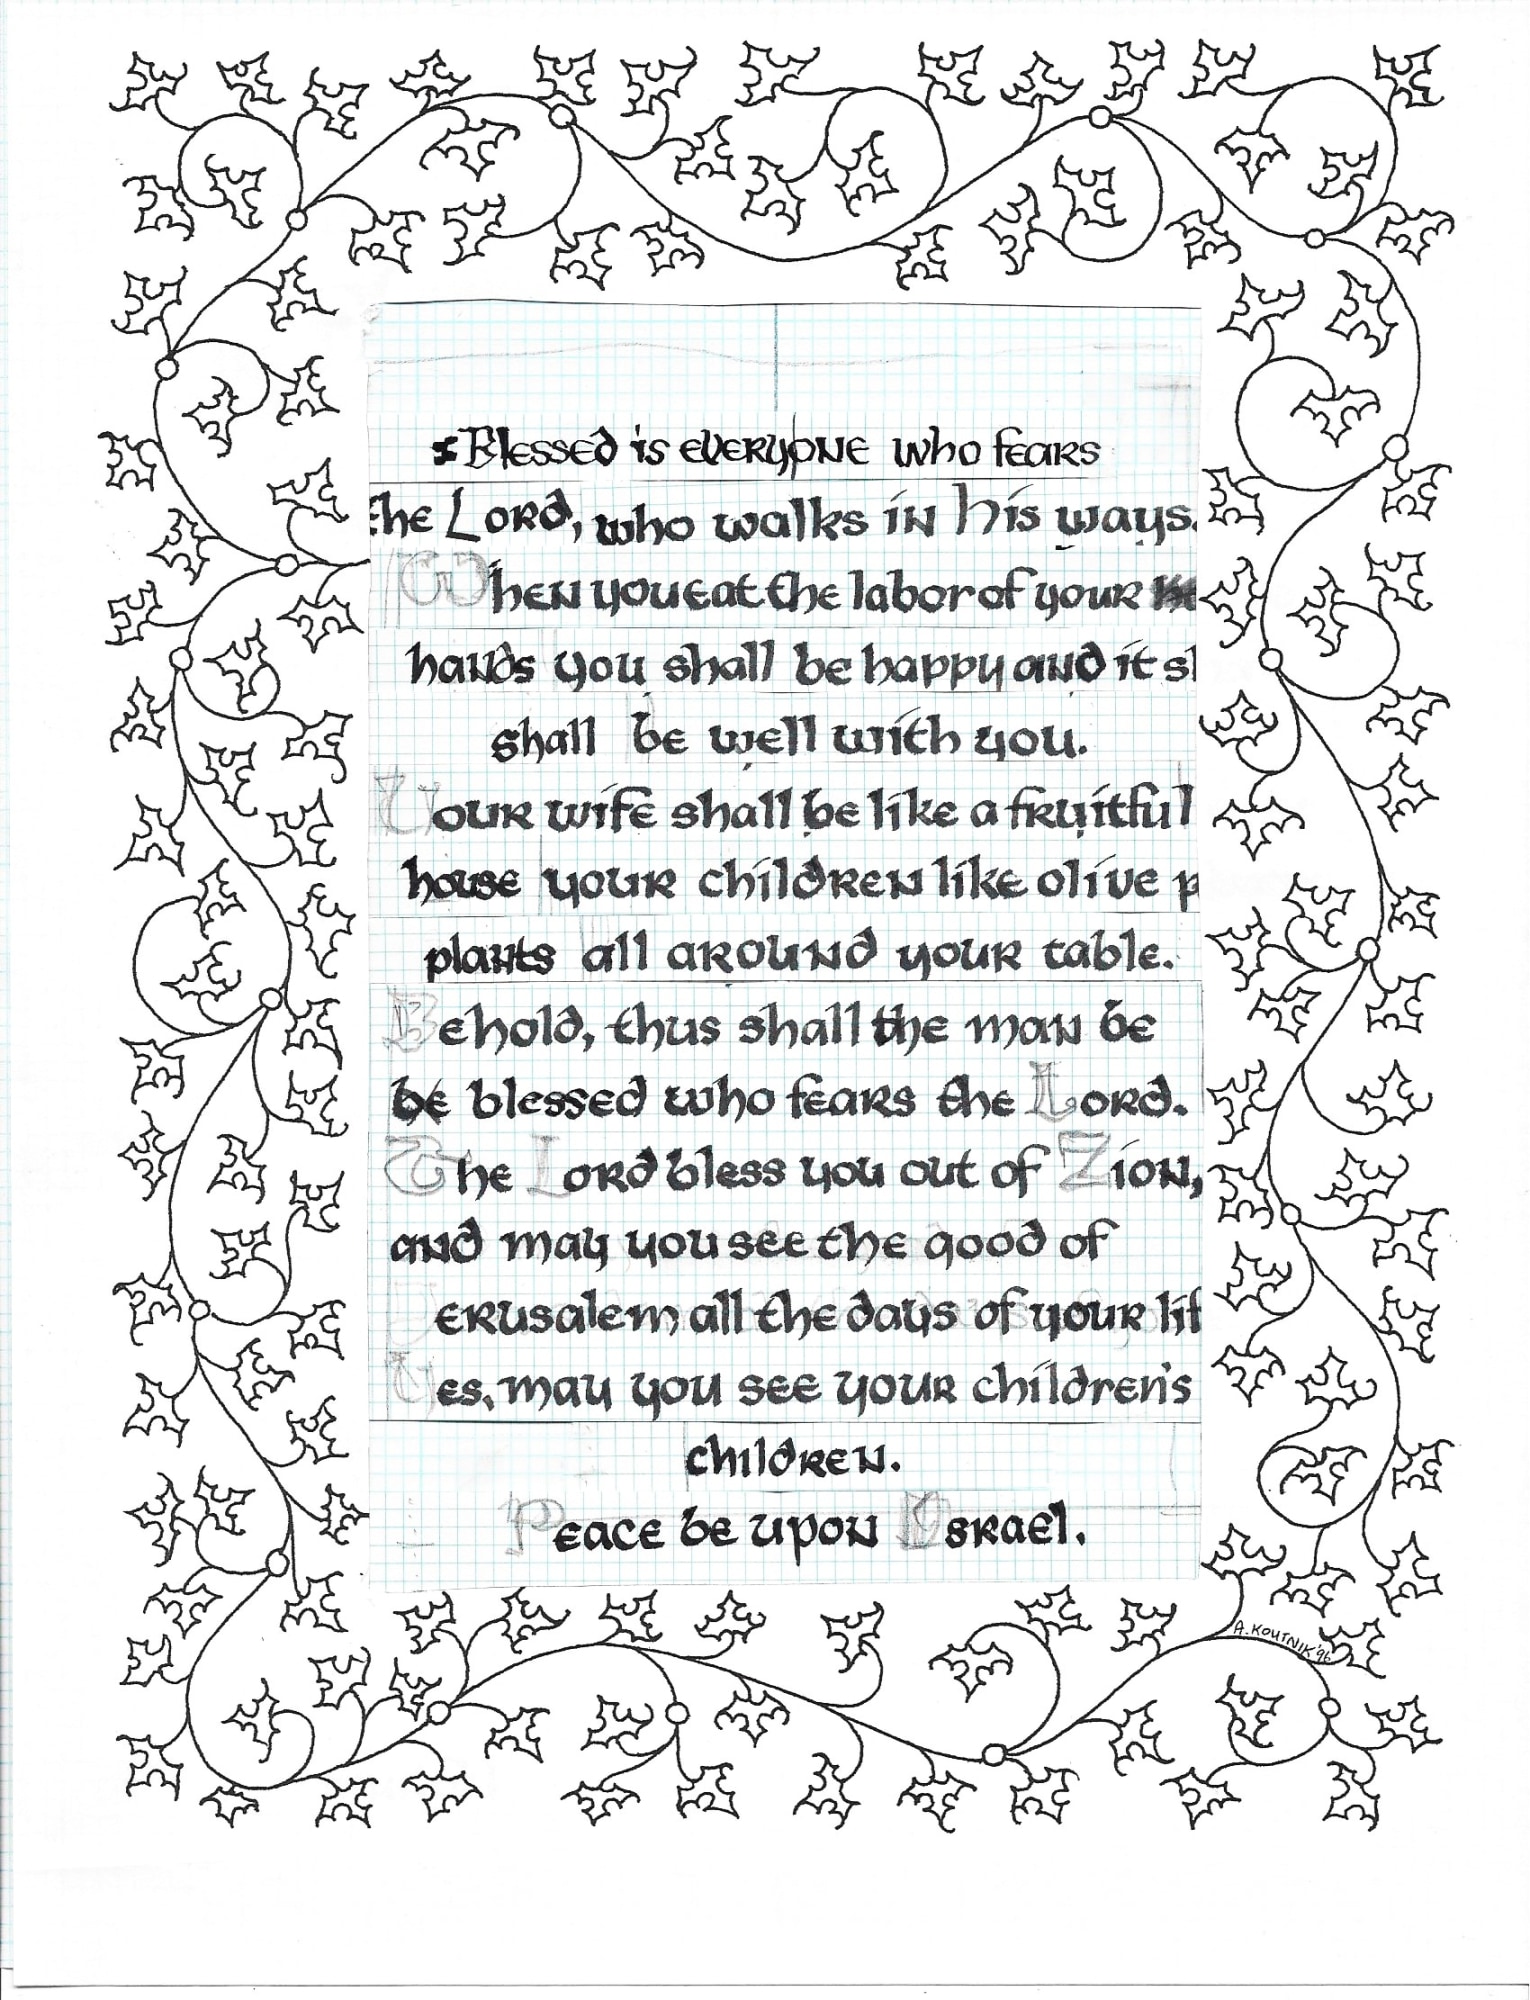 Blessed is everyone who fears
the Lord, who walks in his ways.
When you eat the labor of your
hands you shall be happy and it sh
shall be well with you.
Your wife shall be like a fruitful
house your children like olive p
plants all around your table.
Behold, thus shall the man be
be blessed who fears the Lord.
The Lord bless you out of Zion,
and may you see the good of
Jerusalem all the days of your lif
Yes, may you see your children's
children.
Peace be upon Israel.
A. KOUTNIK '96